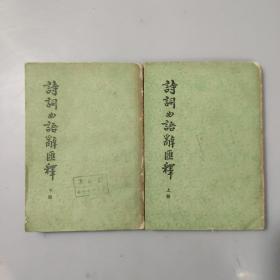 詩詞曲語辭匯釋
下冊
詩詞曲語辭匯釋
上冊